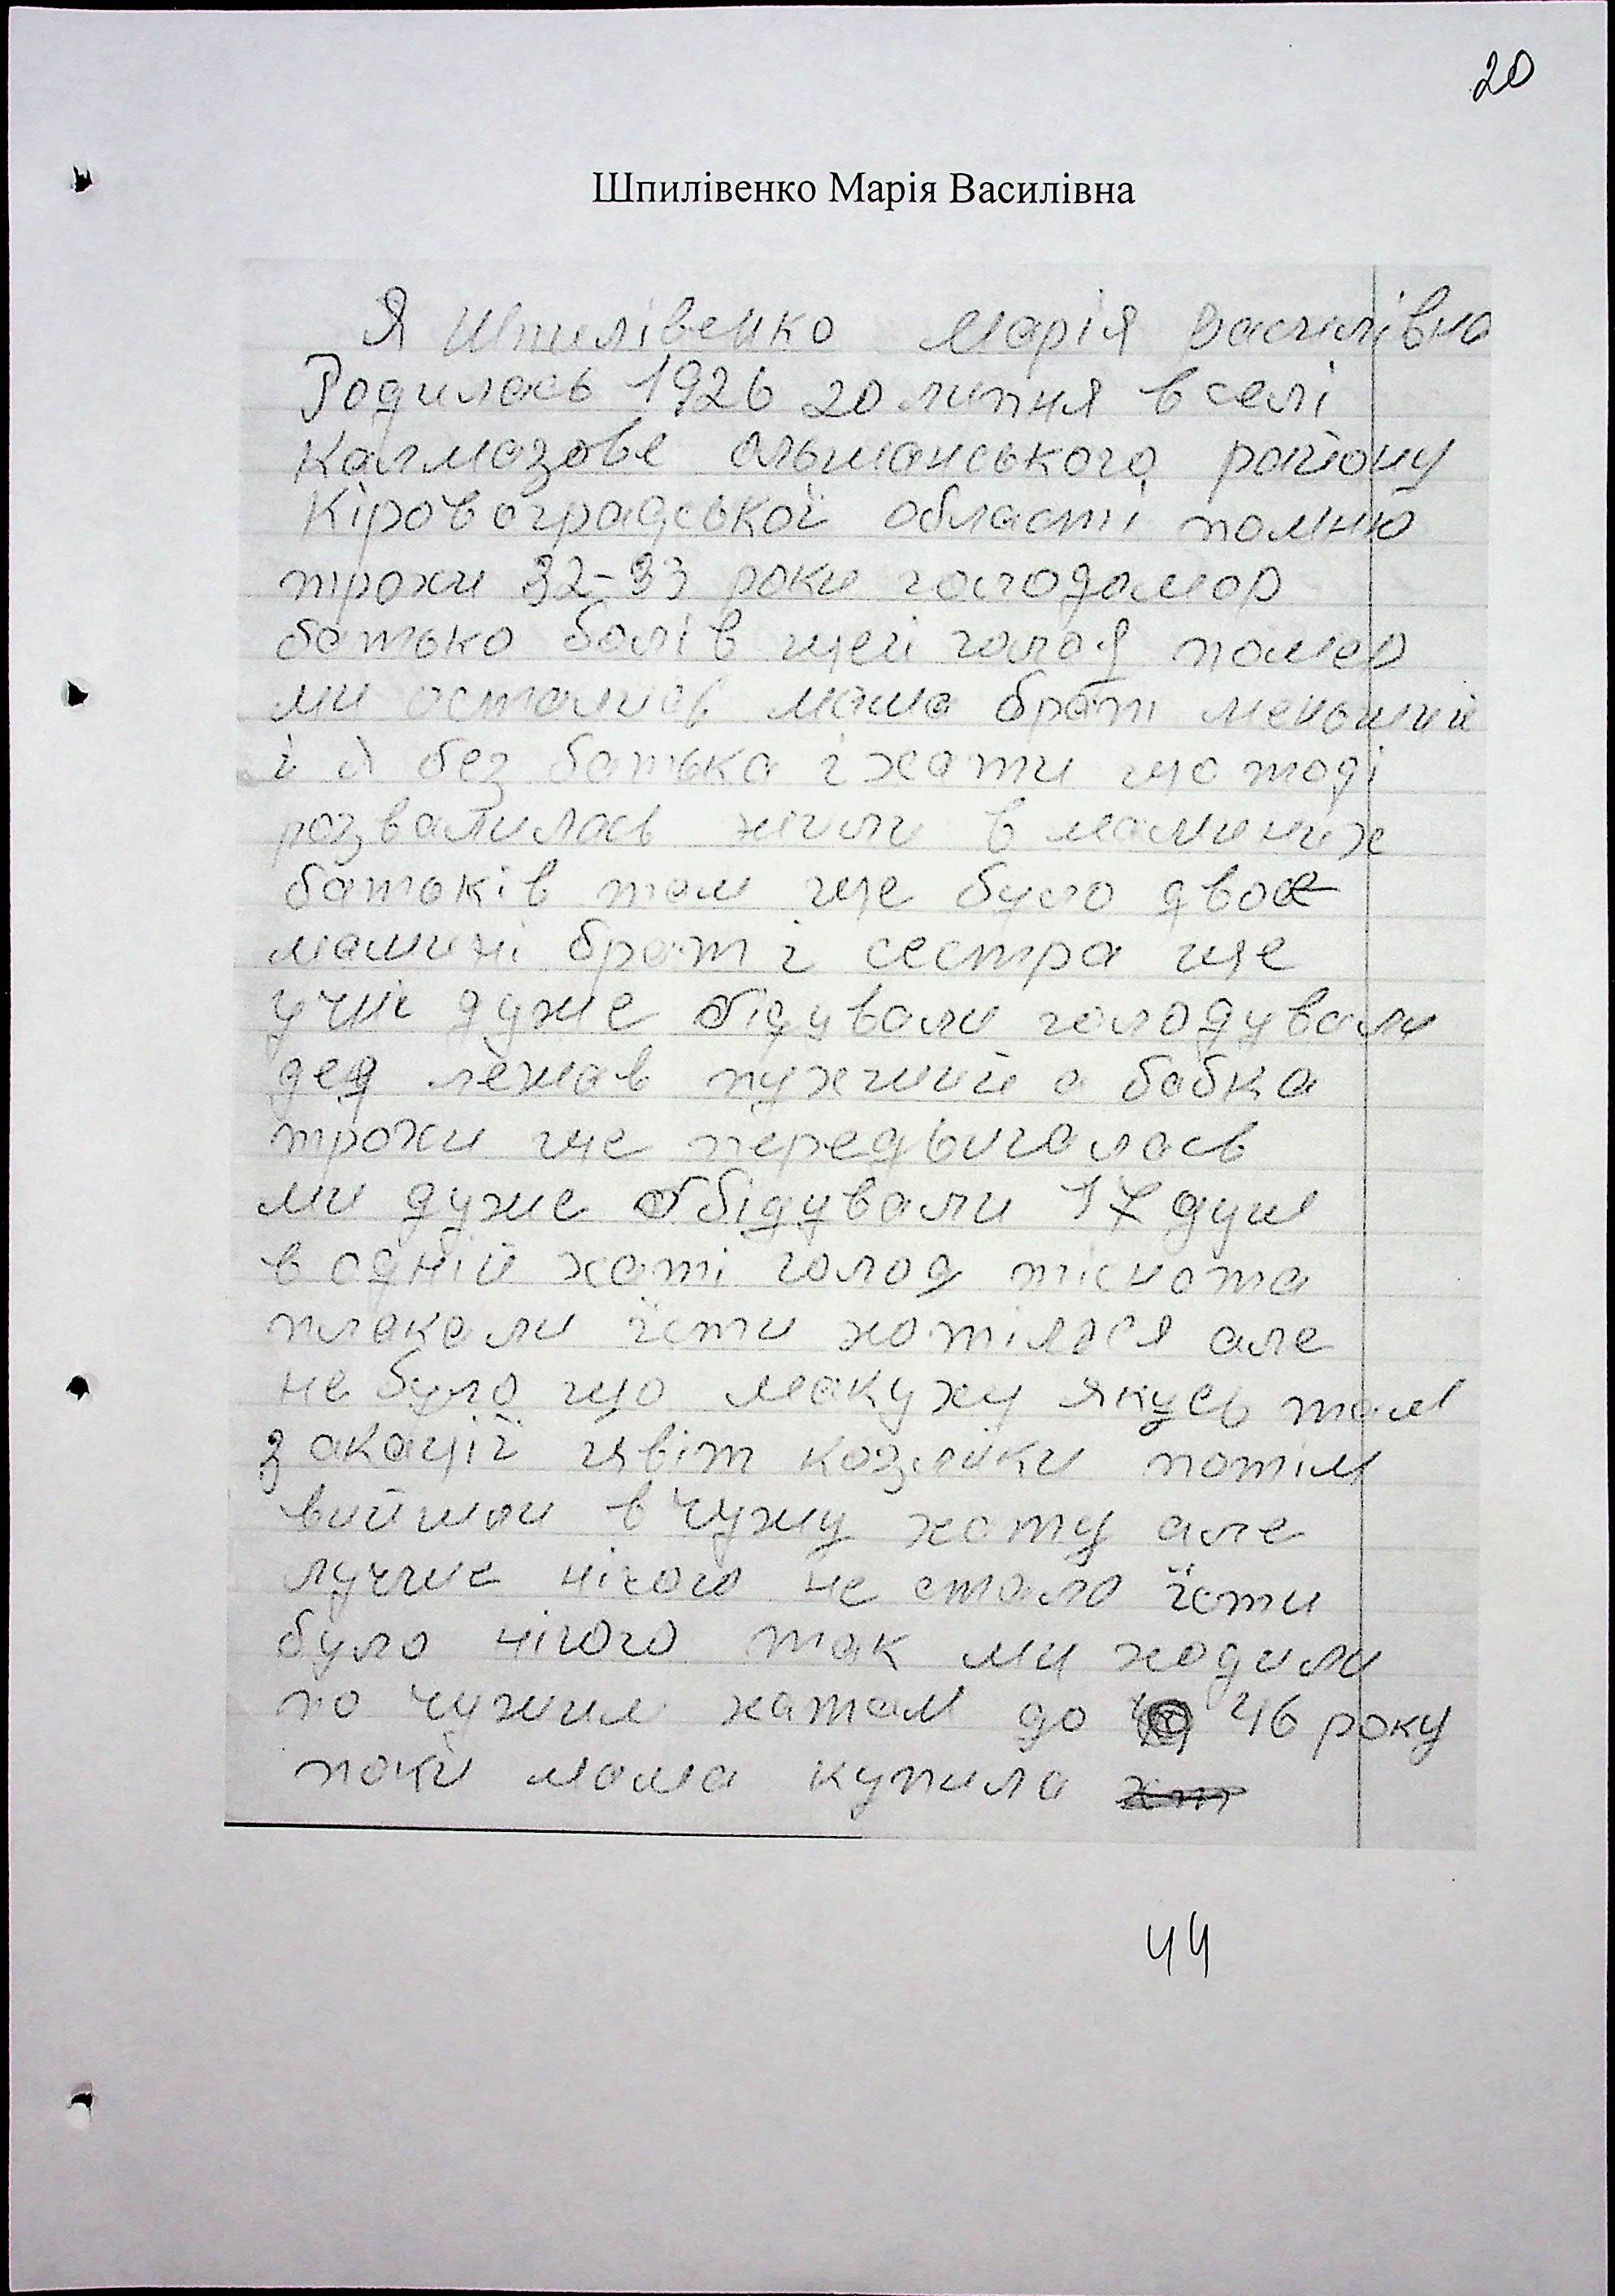 20
Шпилівенко Марія Василівна
Я Шпилівенко Марія Василівна
Родилась 1926 20 липня в селі
Калмазове ольшанського району
Кіровоградської області помню
трохи 32-33 роки голодомор
батько болів щей голод помер
ми остались мама брат меньший
і я без батька і хати що тоді
розвалилась жили в маминих
батьків там ще було двое
мамині брат і сестра ще
дуже бідували голодували
дед лежав пухший а бабка
трохи ще передвигалась
ми дуже обідували 17 душ
в одній хаті голод тіснота
плакали їсти хотілося але
не було що макуху якусь там
з акації цвіт козліки потім
вийшли в чужу хату але
лучше нічого не стало їсти
було нічого так ми ходили
по чужим хатам до 46 року
поки мама купила
44